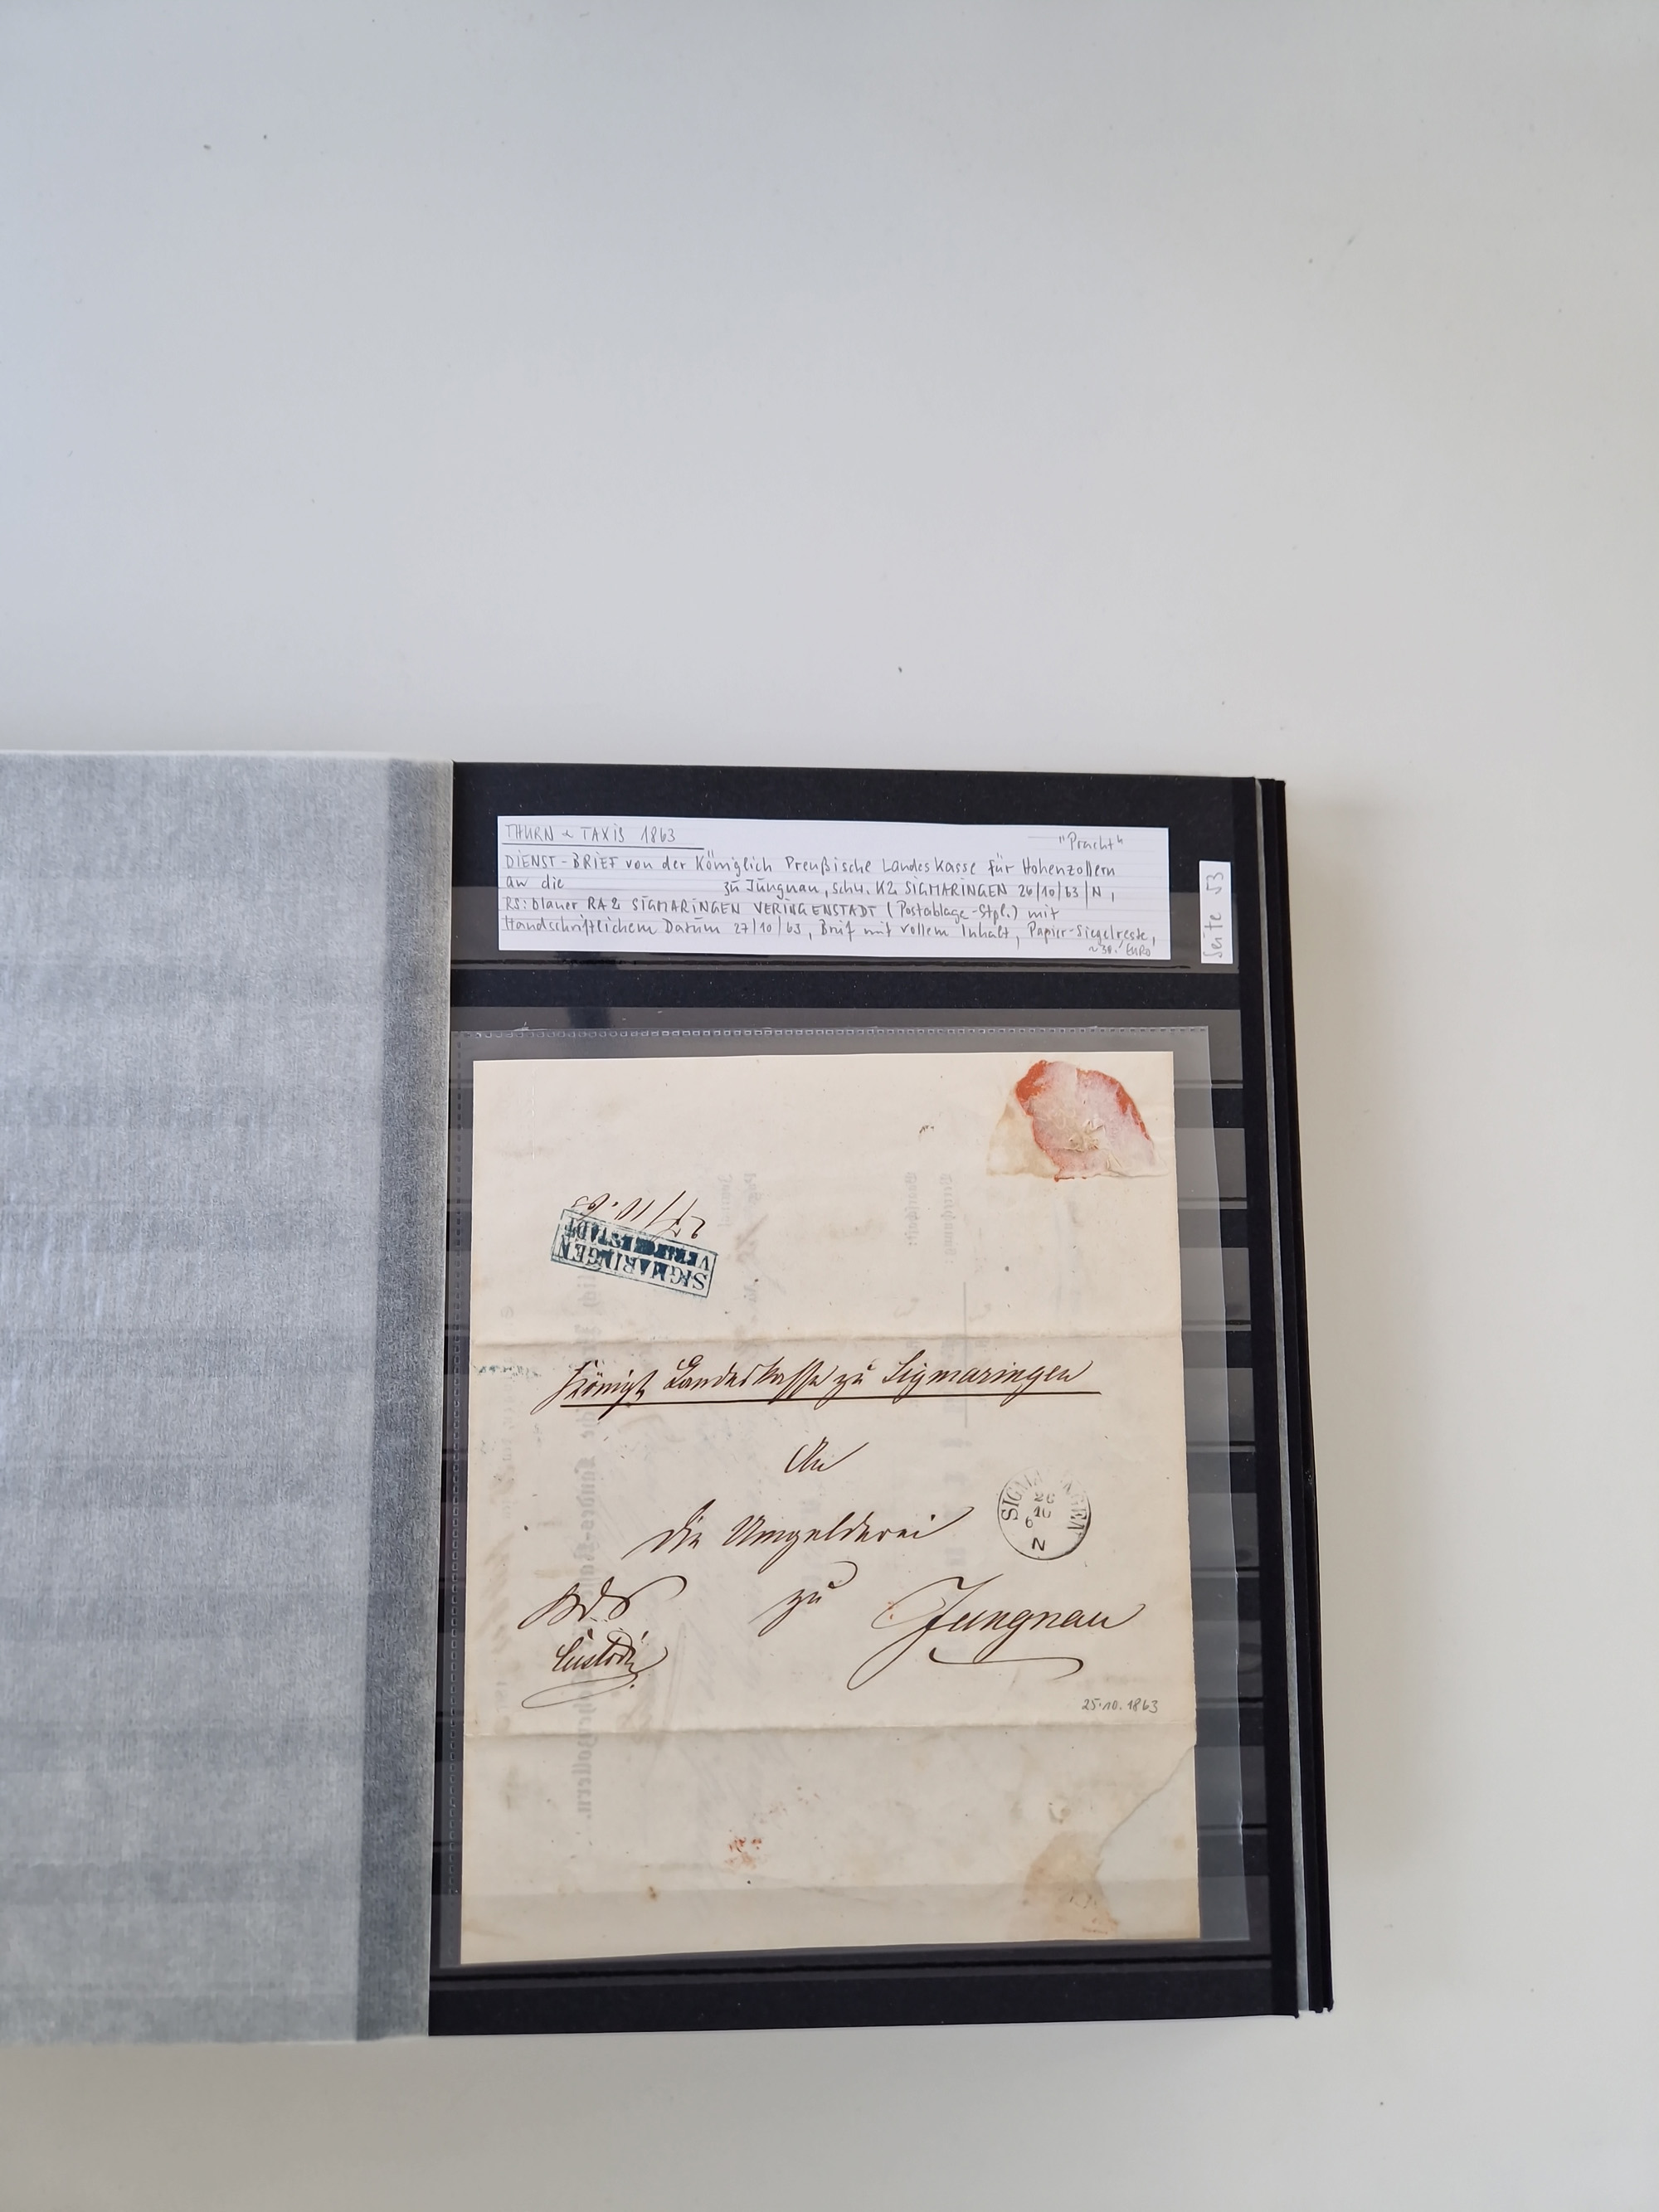 THURN & TAXIS 1863
"Pracht"
DIENST-BRIEF von der Königlich Preußische Landeskasse für Hohenzollern
an die zu Jungnau, schw. K2 SIGMARINGEN 26/10/63/N,
RS: blauer RA2 SIGMARINGEN VERINGENSTADT (Postablage-Stpl.) mit
Handschriftlichem Datum 27/10/63, Brief mit vollem Inhalt, Papier-Siegelreste,
~30.- EURO
Seite 53
27/10.63
SIGMARINGEN
VERINGENSTADT
Königl. Landeskasse zu Sigmaringen
An
die Umgelderei
SIGMARINGEN
26
10
N
zu
Jungnau
25.10.1863